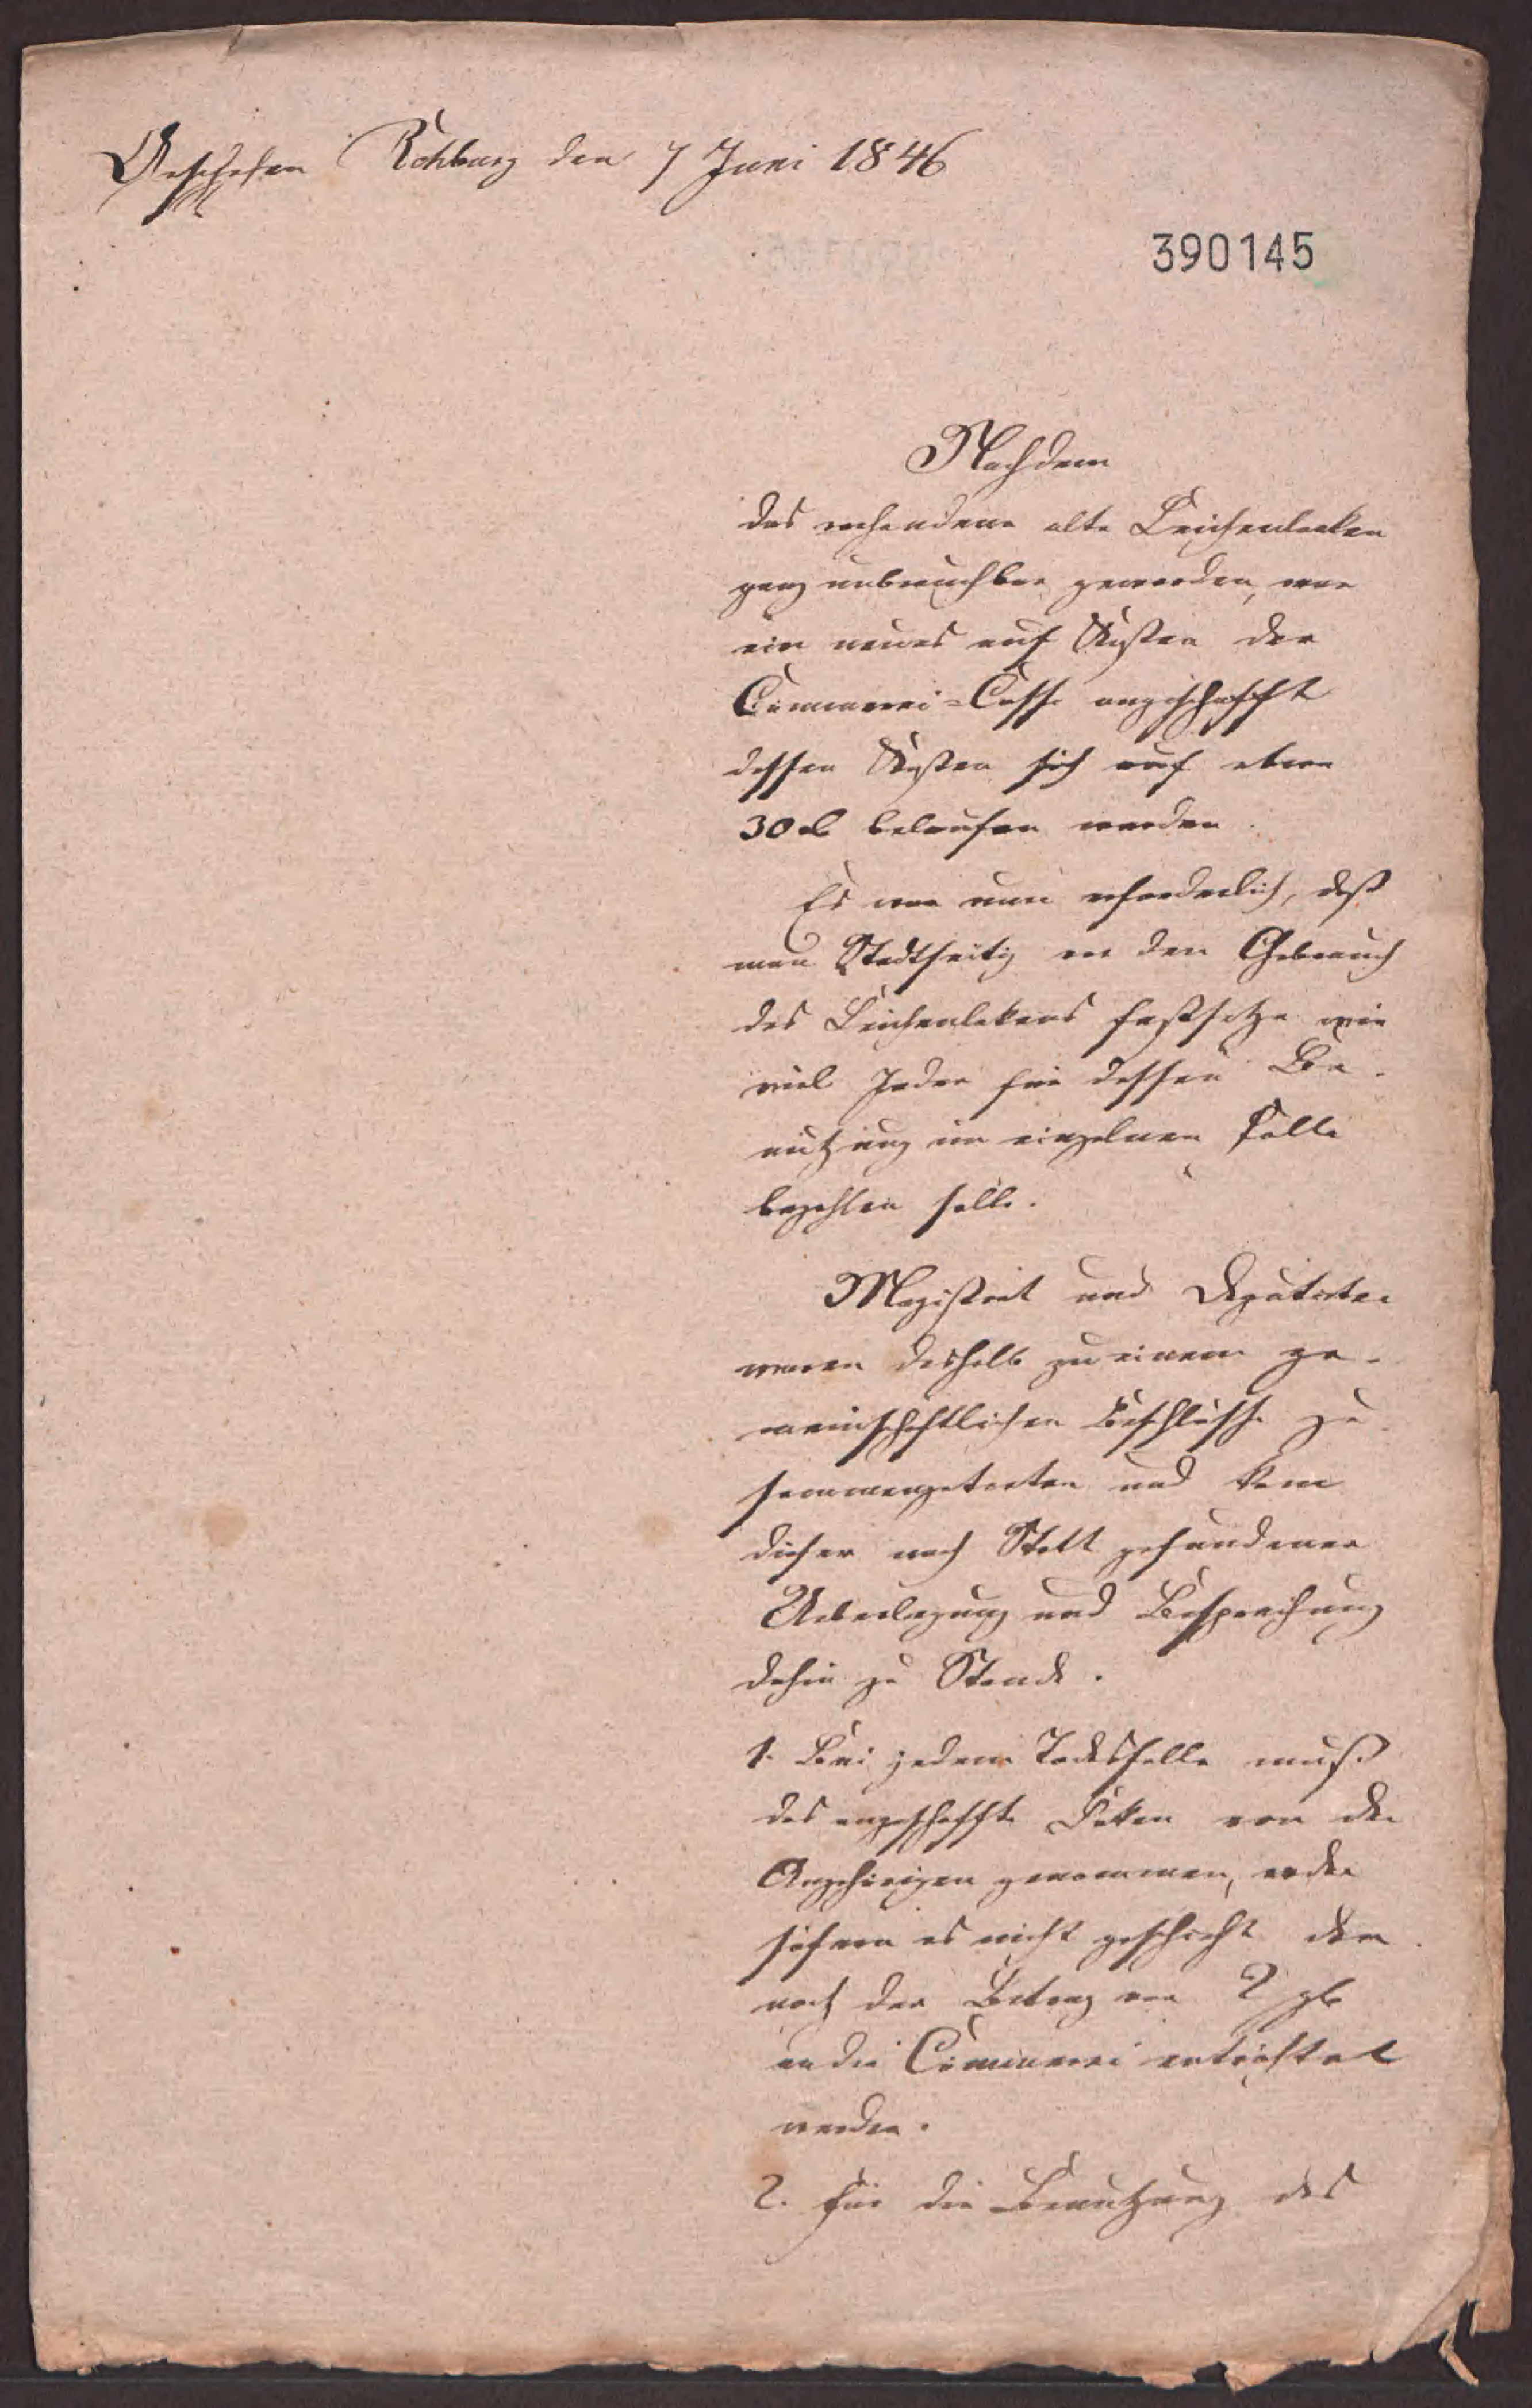 Geschehen Rehburg den 7 Juni 1846
390145
Nachdem
das vorhandene alte Leichenlaken
ganz unbrauchbar geworden, war
ein neues auf Kosten der
Cämmerei-Casse angeschafft
dessen Kosten sich auf etwa
30 belaufen werden.
Es war nun erforderlich, daß
man Stadtseitig den Gebrauch
des Leichenlakens festsetze wie
viel Jeder für dessen Be-
nutzung im einzelnen Falle
bezahlen solle.
Magistrat und Deputirte
waren deshalb zu einem ge-
meinschaftlichen Beschlusse zu-
sammengetreten und kam
dieser nach Statt gefundener
Ueberlegung und Besprechung
dahin zu Stande.
1. Bei jedem Todesfalle muß
das angeschaffte Laken von den
Angehörigen genommen, oder
sofern es nicht geschieht den-
noch der Betrag von 2 ggr
an die Cämmerei entrichtet
werden.
2. Für die Benutzung des